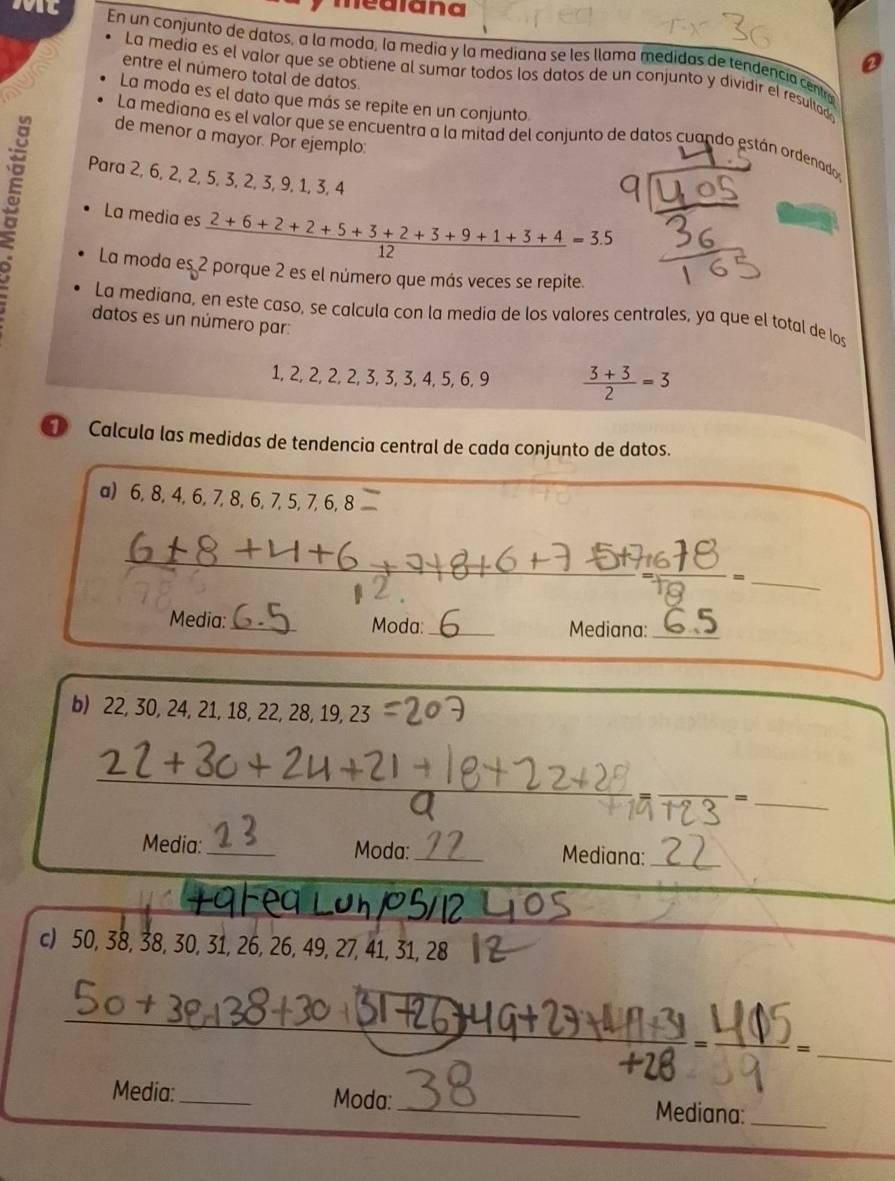 y mediana
En un conjunto de datos, a la moda, la media y la mediana se les llama medidas de tendencia central
• La media es el valor que se obtiene al sumar todos los datos de un conjunto y dividir el resultado
entre el número total de datos.
• La moda es el dato que más se repite en un conjunto.
• La mediana es el valor que se encuentra a la mitad del conjunto de datos cuando están ordenados
de menor a mayor. Por ejemplo:
Para 2, 6, 2, 2, 5, 3, 2, 3, 9, 1, 3, 4
4.5
9 405
36
1 65
• La media es 2 + 6 + 2 + 2 + 5 + 3 + 2 + 3 + 9 + 1 + 3 + 4 / 12 = 3.5
• La moda es 2 porque 2 es el número que más veces se repite.
• La mediana, en este caso, se calcula con la media de los valores centrales, ya que el total de los
datos es un número par:
1, 2, 2, 2, 2, 3, 3, 3, 4, 5, 6, 9 3 + 3 / 2 = 3
Matemáticas
2
1 Calcula las medidas de tendencia central de cada conjunto de datos.
a) 6, 8, 4, 6, 7, 8, 6, 7, 5, 7, 6, 8 =
6+8+4+6+7+8+6+7 5+7+6+8 =
12. = +8
Media: 6.5 Moda: 6 Mediana: 6.5
b) 22, 30, 24, 21, 18, 22, 28, 19, 23 =207
22+30+24+21+18+22+28 =
9 +19 +23
Media: 23 Moda: 22 Mediana: 22
tarea Lun/05/12 405
c) 50, 38, 38, 30, 31, 26, 26, 49, 27, 41, 31, 28 12
50+38+38+30+31+26+49+27+41+31 = 405 =
+28 9
Media: Moda: 38 Mediana: